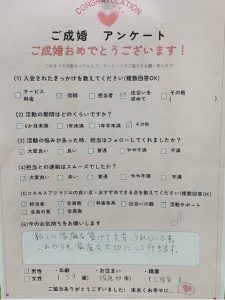 CONGRATULATION
ご成婚 アンケート
ご成婚おめでとうございます！
(1) 入会されたきっかけを教えてください(複数回答OK)
サービス 料金
信頼
担当者
出会いを求めて
その他
(2) 活動の期間はどのくらいですか？
6か月未満
1年未満
1年半未満
その他
(3) 活動の悩みがあった時、担当はフォローしてくれましたか？
大変良い
良い
普通
やや不満
不満
(4) 担当との連絡はスムーズでしたか？
大変良い
良い
普通
やや不満
不満
(5) コスモスブリリエの良い点・おすすめできる点を教えてください(複数回答OK)
担当者
会員数
料金体系
出会いの数
活動サポート
会員の質
会員数
(6) 今のお気持ちをお願いします
新しい家庭を築けて大変うれしいです。
これからも家庭を大切にして行きます。
男性
・年齢
・お住まい
・職業
女性
歳
ご協力ありがとうございました！ 末永くお幸せに